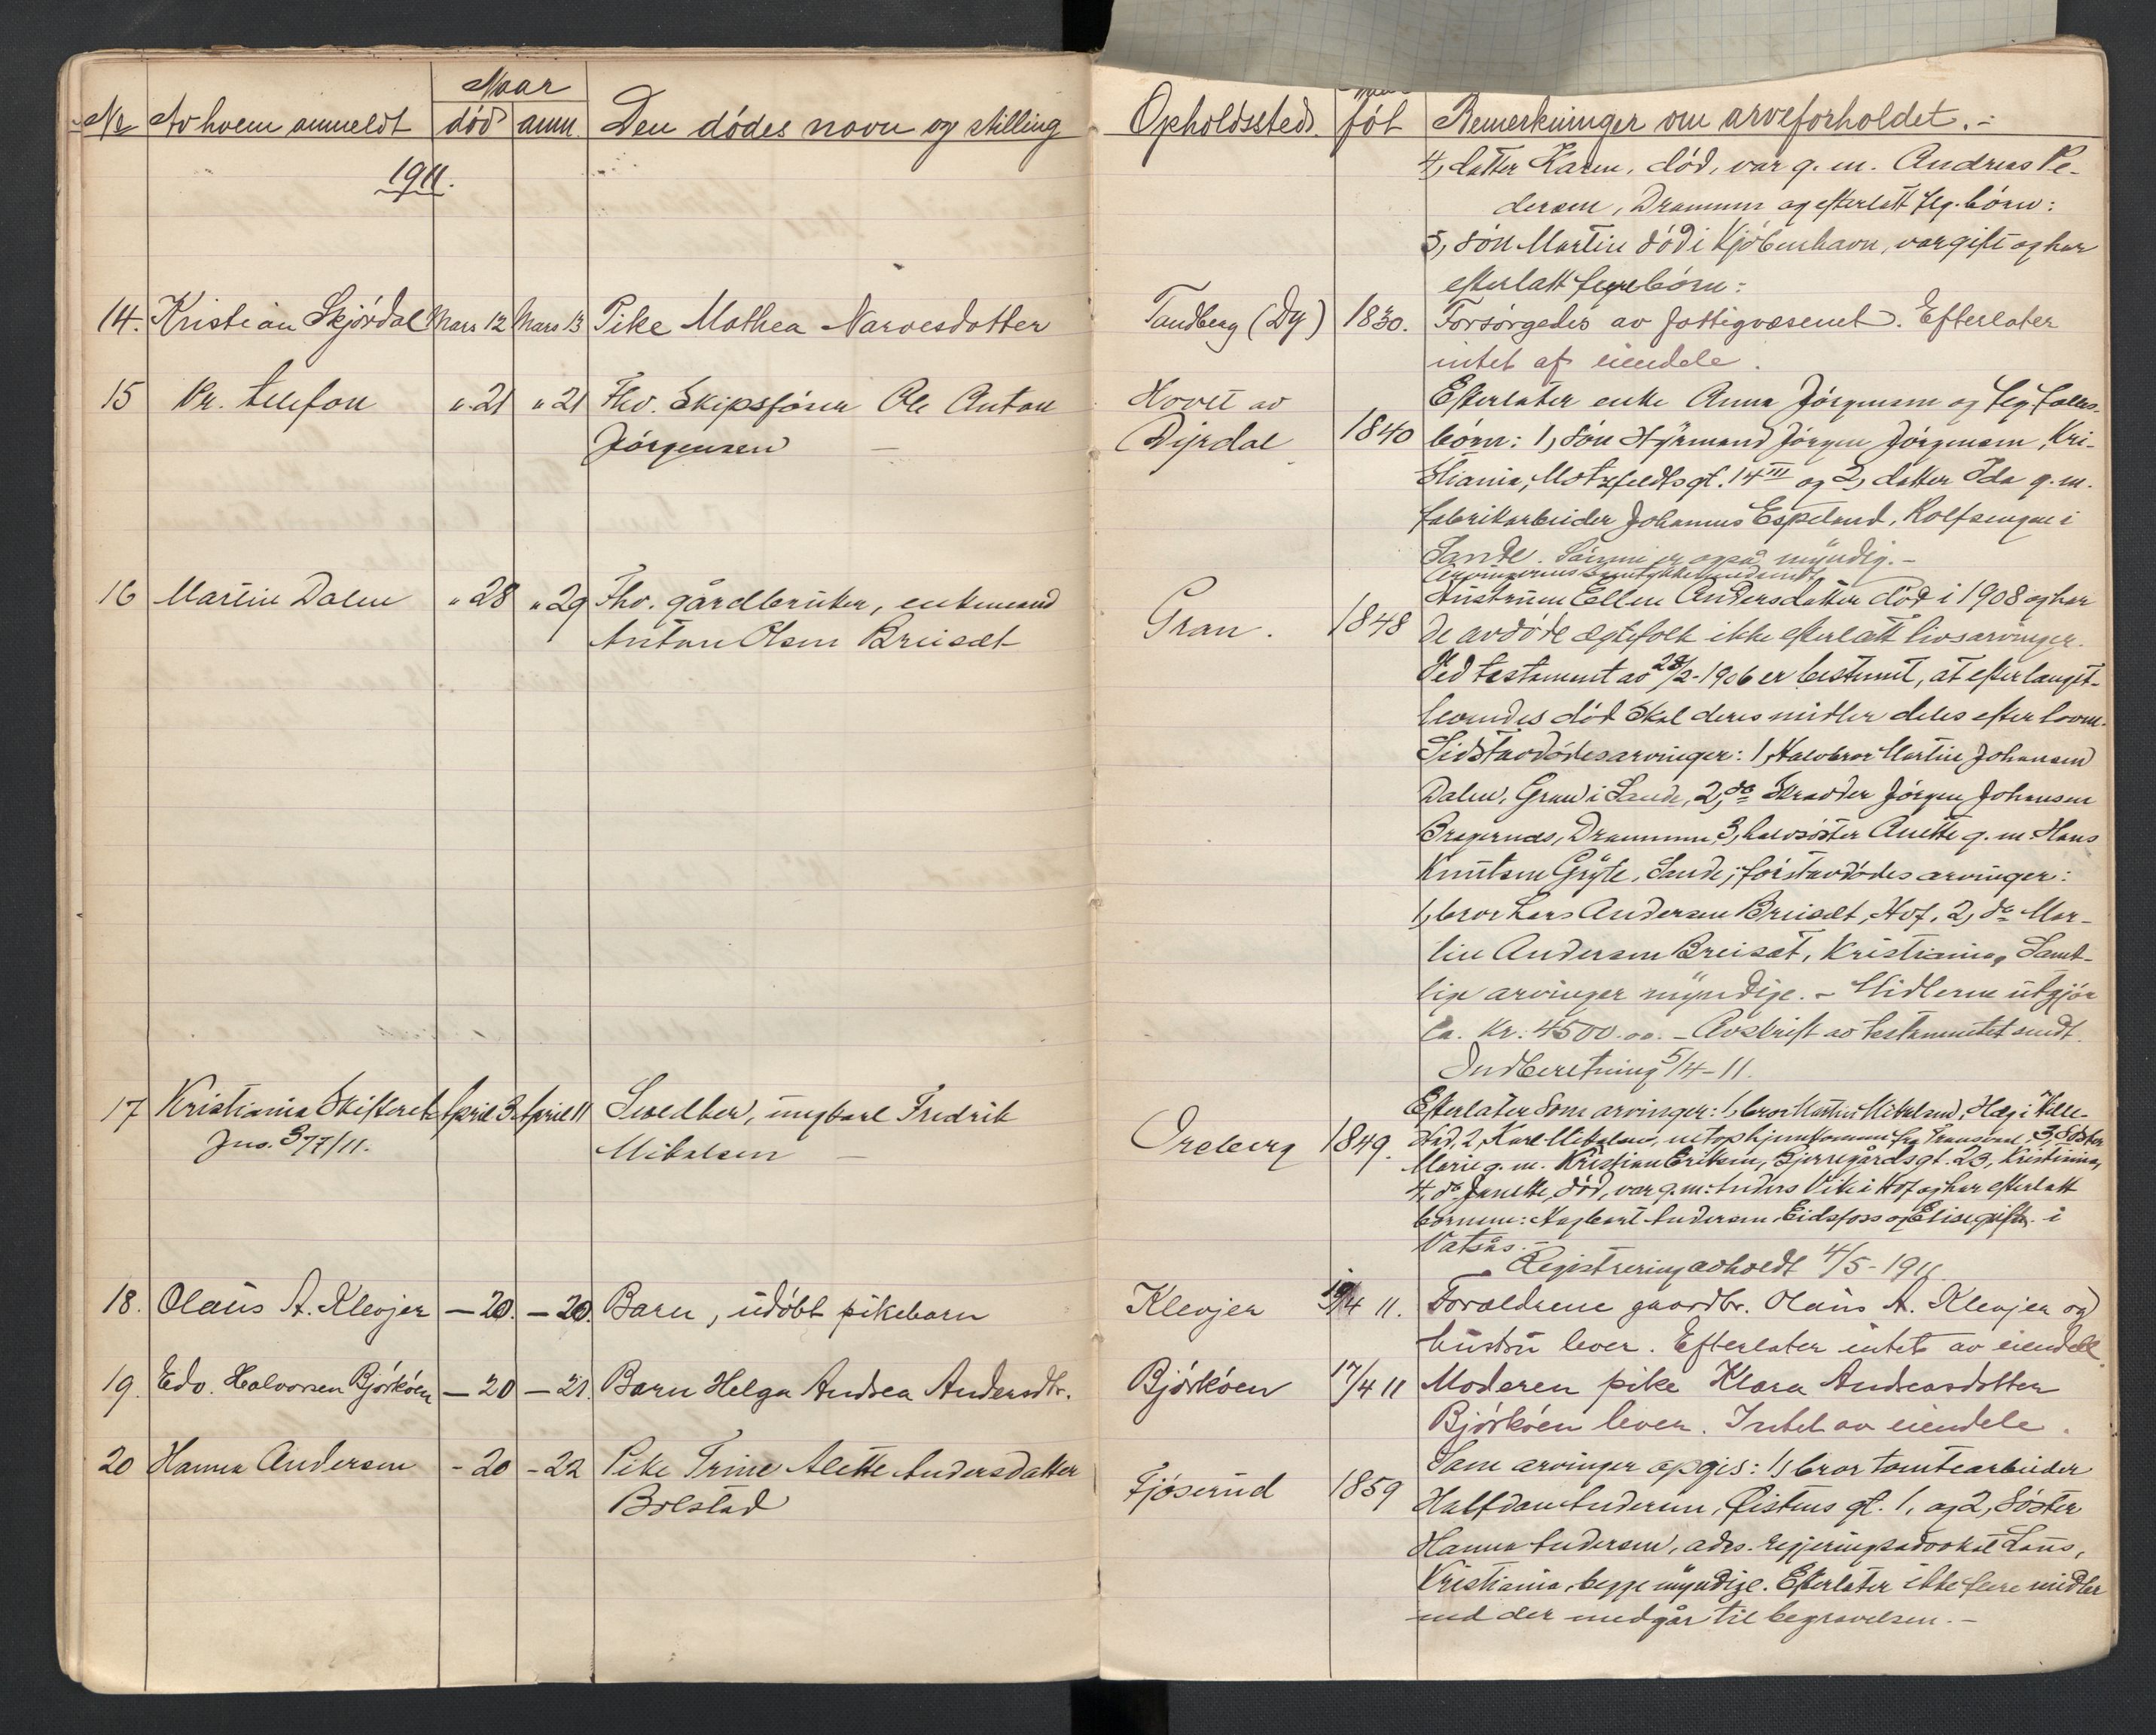 Naar
No Av hvem anmeldt død anm. Den dødes navn og stilling
1911.
14. Kristian Skjørdal Mars 12 Mars 13 Pike Mathea Narvesdatter
15 Pr. telefon " 21 " 21 Fhv. Skipsfører Ole Anton
Jørgensen —
16 Martin Dalen " 28 " 29 Fhv. gårdbruker, enkemand
Anton Olsen Breisæt
17 Kristiania Skifteret April 3. April 11 Svedber, ungkarl Fredrik
Jns. 377/11. Mikalsen —
18. Olaus A. Klevjer — 20. — 20. Barn, udøbt pikebarn
19. Edv. Halvorsen Bjørkøen — 20 — 21. Barn Helga Andrea Andersdtr.
20 Hanna Andersen - 20 - 22 Pike Trine Alette Andersdatter
Bolstad
Opholdssted. føt Bemerkninger om arveforholdet. -
4, datter Karen, død, var g. m. Andreas Pe-
dersen, Drammen og efterlatt flg. børn:
5, søn Martin død i Kjøbenhavn, var gift og har
efterlatt flere børn:
Tandberg (Dy) 1830. Forsørgedes av fattigvæsenet. Efterlater
intet af eiendele.
Hovet av Efterlater enke Anna Jørgensen og flg. fælles-
Dyrdal 1840 børn: 1, søn Styrmand Jørgen Jørgensen, Kri-
stiania, Motzfeldtsgt. 14 III og 2, datter Ida g. m.
fabrikarbeider Johannes Espeland, Rolfsengen i
Sande. Sønnen er også myndig. -
Gran. 1848 Hustruen Ellen Andersdatter død i 1908 og har
de avdøde ægtefolk ikke efterlatt livsarvinger.
Ved testament av 28/2-1906 er bestemt, at efter længst-
levendes død skal deres midler deles efter loven.
Sidstavdødes arvinger: 1, Halvbror Martin Johansen
Dalen, Gran i Sande, 2, do Skrædder Jørgen Johansen
Bragernes, Drammen, 3, halvsøster Anette g. m. Hans
Knutsen Gryte, Sande; førstavdødes arvinger:
1, bror Lars Andersen Breisæt, Hof, 2, do Mar-
tin Andersen Breisæt, Kristiania, Samt-
lige arvinger myndige. - Midlerne utgjør
ca. Kr. 4500.00. - Avskrift av testamentet sendt.
Indberetning 5/4-11.
Efterlater som arvinger: 1, bror Mikalsen, i
Oreberg 1849. 2, Karl Mikalsen, netop hjemkommen fra Transvaal, 3, Søster
Marie g. m. Kristian Eriksen, Bjerregårdsgt. 23, Kristiania,
4, do Janette, død, var g. m. Anders Vike i Hof og har efterlatt
børnene: Hagbart Andersen, Eidsfoss og Elise gift i
Vatsås. -
Registrering avholdt 4/5-1911.
Klevjer 19/4 11. Forældrene gaardbr. Olaus A. Klevjer og
hustru lever. Efterlater intet av eiendele.
Bjørkøen 17/4 11 Moderen pike Klara Andreasdatter
Bjørkøen lever. Intet av eiendele.
Som arvinger opgis: 1, bror tomtearbeider
Fjøserud 1859 Halfdan Andersen, Østens gt. 1, og 2, søster
Hanna Andersen, adrs. regjeringsadvokat Lous,
Kristiania, begge myndige. Efterlater ikke flere midler
end der medgår til begravelsen. -